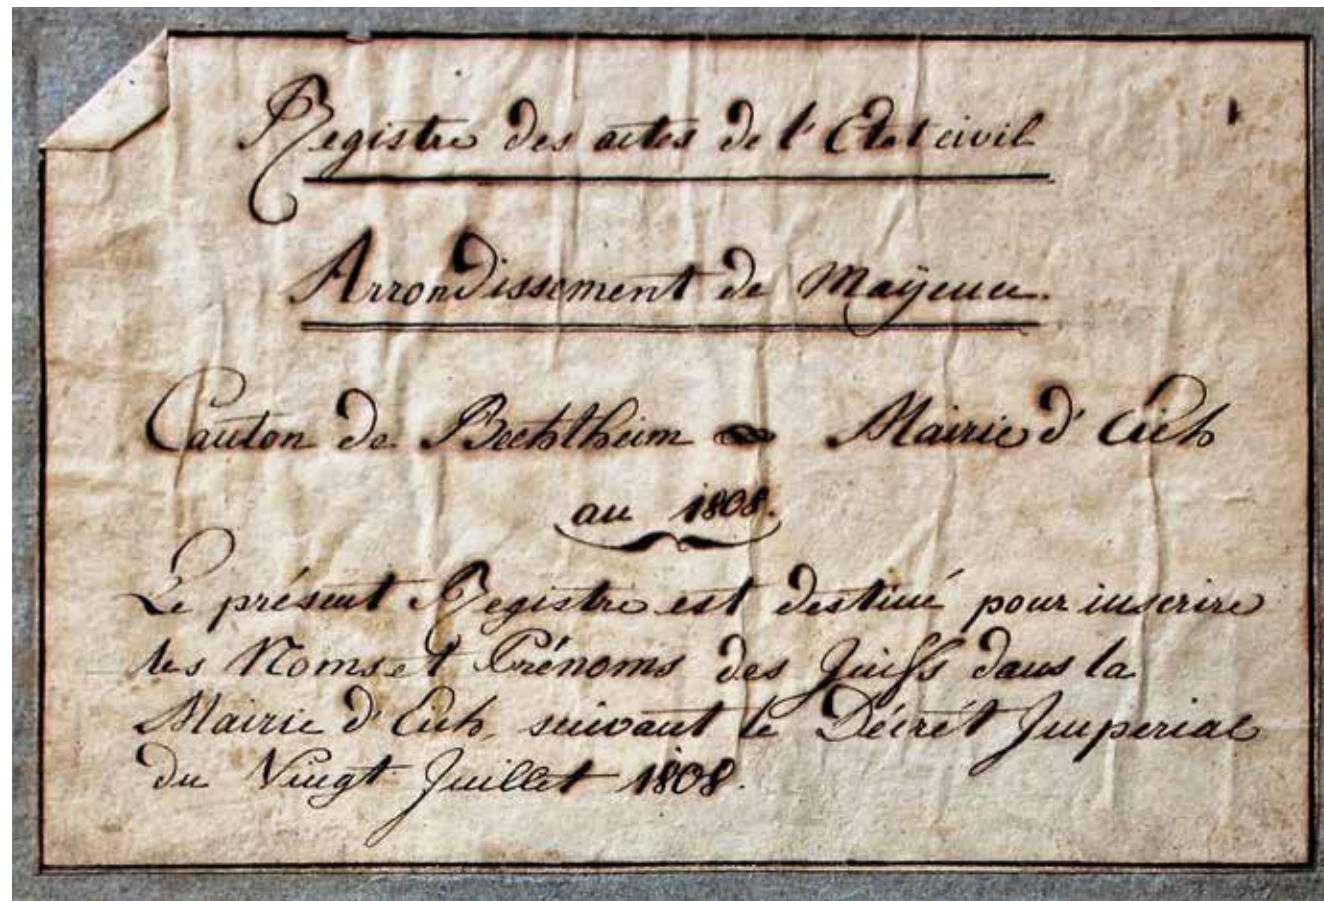 Registre des actes de l'Etat civil
Arrondissement de Maÿence.
Canton de Bechtheim Mairie d'Eich
au 1808.
Le présent Registre est destiné pour inscrire
les Noms et Prénoms des Juifs dans la
Mairie d'Eich, suivant le Décrét Imperial
du Vingt Juillet 1808.